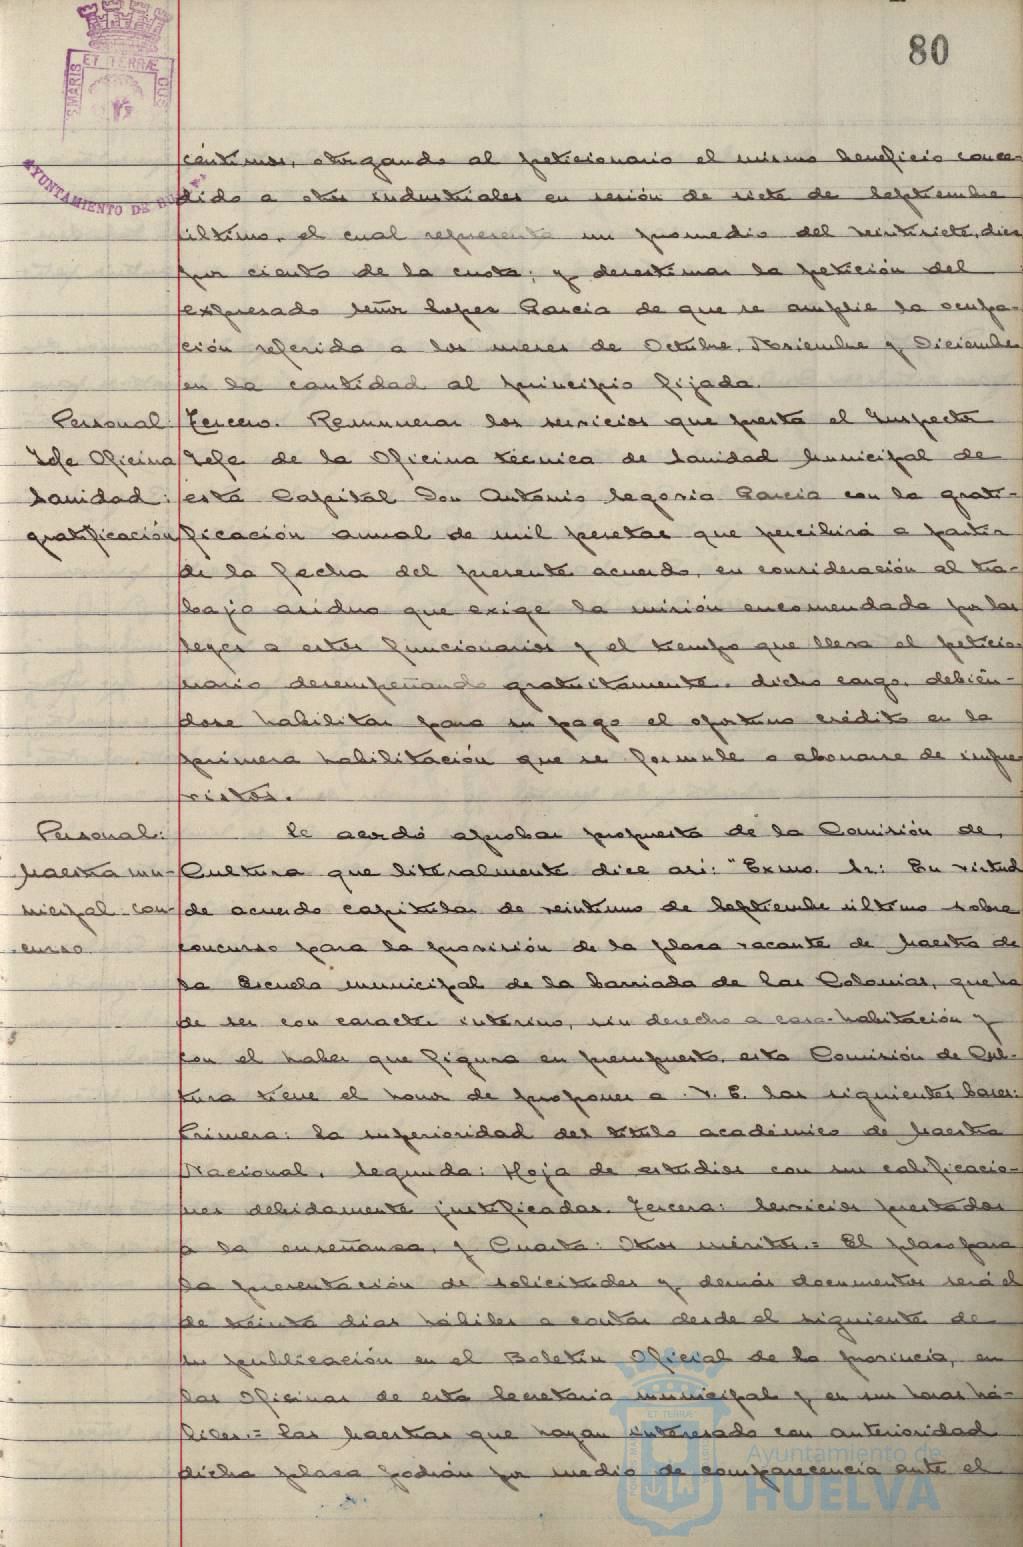 80
ET TERRÆ
MARIS
CUS
AYUNTAMIENTO DE HUELVA
céntimos, otorgando al peticionario el mismo beneficio conce-
dido a otros industriales en sesión de siete de Septiembre
último, el cual representa un promedio del veintisiete, diez
por ciento de la cuota; y desestimar la petición del
expresado señor Lopez Garcia de que se amplie la ocupa-
ción referida a los meses de Octubre, Noviembre y Diciembre
en la cantidad al principio fijada.
Personal:
Jefe Oficina
Sanidad:
gratificación
Tercero. Remunerar los servicios que presta el Inspector
Jefe de la Oficina técnica de Sanidad Municipal de
esta Capital Don Antonio Segovia Garcia con la grati-
ficación annal de mil pesetas que percibirá a partir
de la fecha del presente acuerdo, en consideración al tra-
bajo asiduo que exige la misión encomendada por las
leyes a estos funcionarios y el tiempo que lleva el peticio-
nario desempeñando gratuitamente dicho cargo, debién-
dose habilitar para su pago el oportuno crédito en la
primera habilitación que se formule o abonarse de impre-
vistos.
Personal:
Maestra mu-
nicipal con-
curso
Se acordó aprobar propuesta de la Comisión de
Cultura que literalmente dice asi: "Exmo. Sr: En virtud
de acuerdo capitular de veintiuno de Septiembre último sobre
concurso para la provisión de la plaza vacante de Maestra de
la Escuela municipal de la barriada de las Colonias, que ha
de ser con caracter interino, sin derecho a casa-habitación y
con el haber que figura en presupuesto, esta Comisión de Cul-
tura tiene el honor de proponer a V. E. las siguientes bases:
Primera: La superioridad del titulo académico de Maestra
Nacional. Segunda: Hoja de estudios con sus calificacio-
nes debidamente justificadas. Tercera: Servicios prestados
a la enseñanza, y Cuarta: Otros méritos.= El plazo para
la presentación de solicitudes y demás documentos será el
de treinta dias hábiles a contar desde el siguiente de
su publicación en el Boletin Oficial de la provincia, en
las Oficinas de esta Secretaria municipal y en sus horas há-
biles.= Las Maestras que hayan interesado con anterioridad
dicha plaza podrán por medio de comparecencia ante el
Ayuntamiento de
HUELVA